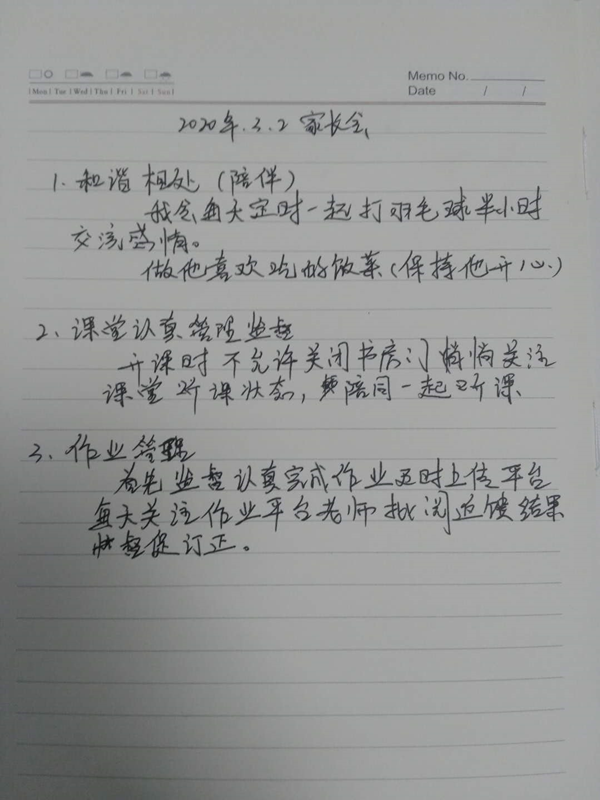 Memo No.
Mon | Tue | Wed | Thu | Fri | Sat | Sun
Date / /
2020年.3.2 家长会
1. 和谐相处（陪伴）
我会每天定时一起打羽毛球半小时
交流感情。
做他喜欢吃的饭菜（保持他开心）
2、课堂认真管理监督
开课时不允许关闭书房门悄悄关注
课堂听课状态，陪同一起听课
3、作业管理
首先监督认真完成作业及时上传平台
每天关注作业平台老师批阅返馈结果
督促订正。